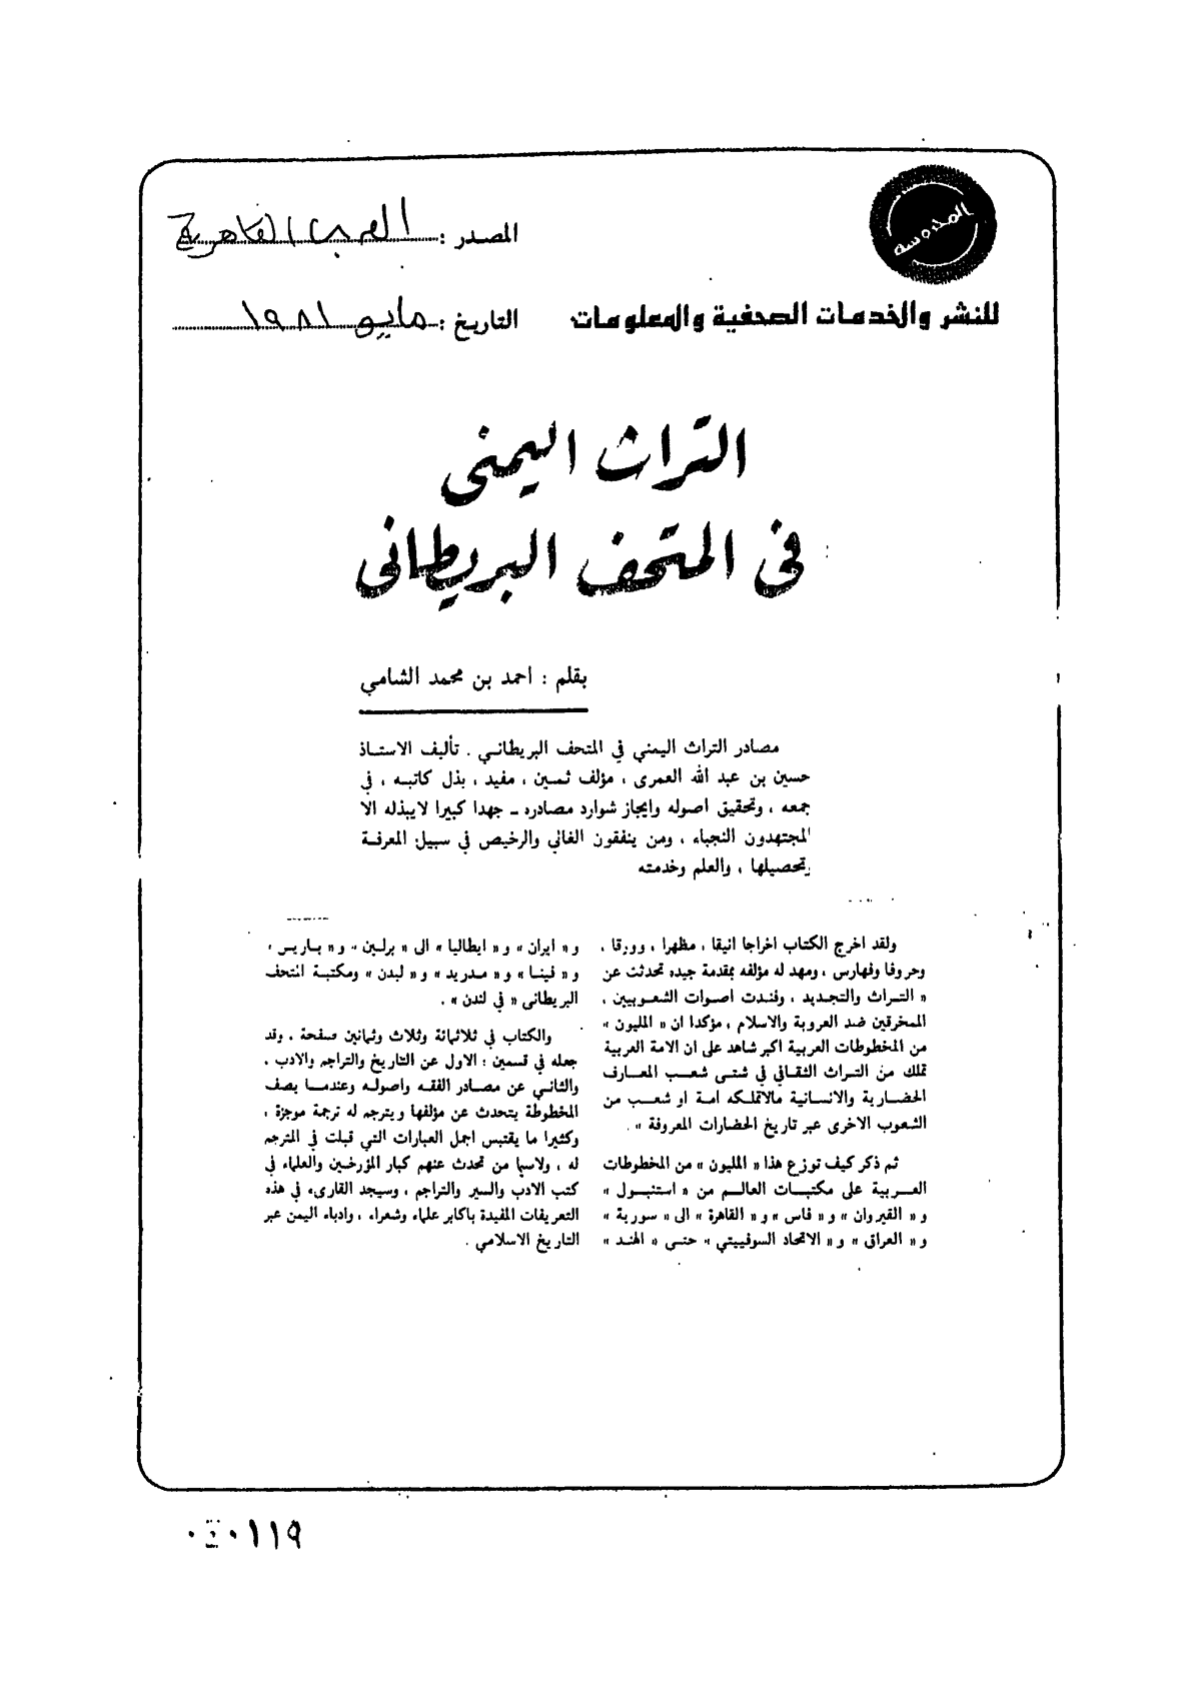 المحروسة
للنشر والخدمات الصحفية والمعلومات
المصدر : العرب القاهرية
التاريخ : مايو ١٩٨١
التراث اليمنى
فى المتحف البريطانى
بقلم : احمد بن محمد الشامي
مصادر التراث اليمني في المتحف البريطاني . تأليف الاستاذ
حسين بن عبد الله العمرى ، مؤلف ثمين ، مفيد ، بذل كاتبه ، في
جمعه ، وتحقيق اصوله وايجاز شوارد مصادره ــ جهدا كبيرا لايبذله الا
المجتهدون النجباء ، ومن ينفقون الغالي والرخيص في سبيل المعرفة
وتحصيلها ، والعلم وخدمته
ولقد اخرج الكتاب اخراجا انيقا ، مظهرا ، وورقا ،
وحروفا وفهارس ، ومهد له مؤلفه بمقدمة جيده تحدثت عن
« التراث والتجديد ، وفندت اصوات الشعوبيين ،
الممخرقين ضد العروبة والاسلام ، مؤكدا ان « المليون »
من المخطوطات العربية اكبر شاهد على ان الامة العربية
تملك من التراث الثقافي في شتى شعب المعارف
الحضارية والانسانية مالاتملكه امة او شعب من
الشعوب الاخرى عبر تاريخ الحضارات المعروفة » .
ثم ذكر كيف توزع هذا « المليون » من المخطوطات
العربية على مكتبات العالم من « استنبول »
و « القيروان » و « فاس » و « القاهرة » الى « سورية »
و « العراق » و « الاتحاد السوفييتي » حتى « الهند »
و « ايران » و « ايطاليا » الى « برلين » و « باريس »
و « فينا » و « مدريد » و « لبدن » ومكتبة المتحف
البريطانى « في لندن » .
والكتاب في ثلاثمائة وثلاث وثمانين صفحة . وقد
جعله في قسمين : الاول عن التاريخ والتراجم والادب .
والثاني عن مصادر الفقه واصوله وعندما يصف
المخطوطة يتحدث عن مؤلفها ويترجم له ترجمة موجزة ،
وكثيرا ما يقتبس اجمل العبارات التي قيلت في المترجم
له ، ولاسيما من تحدث عنهم كبار المؤرخين والعلماء في
كتب الادب والسير والتراجم ، وسيجد القارىء في هذه
التعريفات المفيدة باكابر علماء وشعراء ، وادباء اليمن عبر
التاريخ الاسلامي .